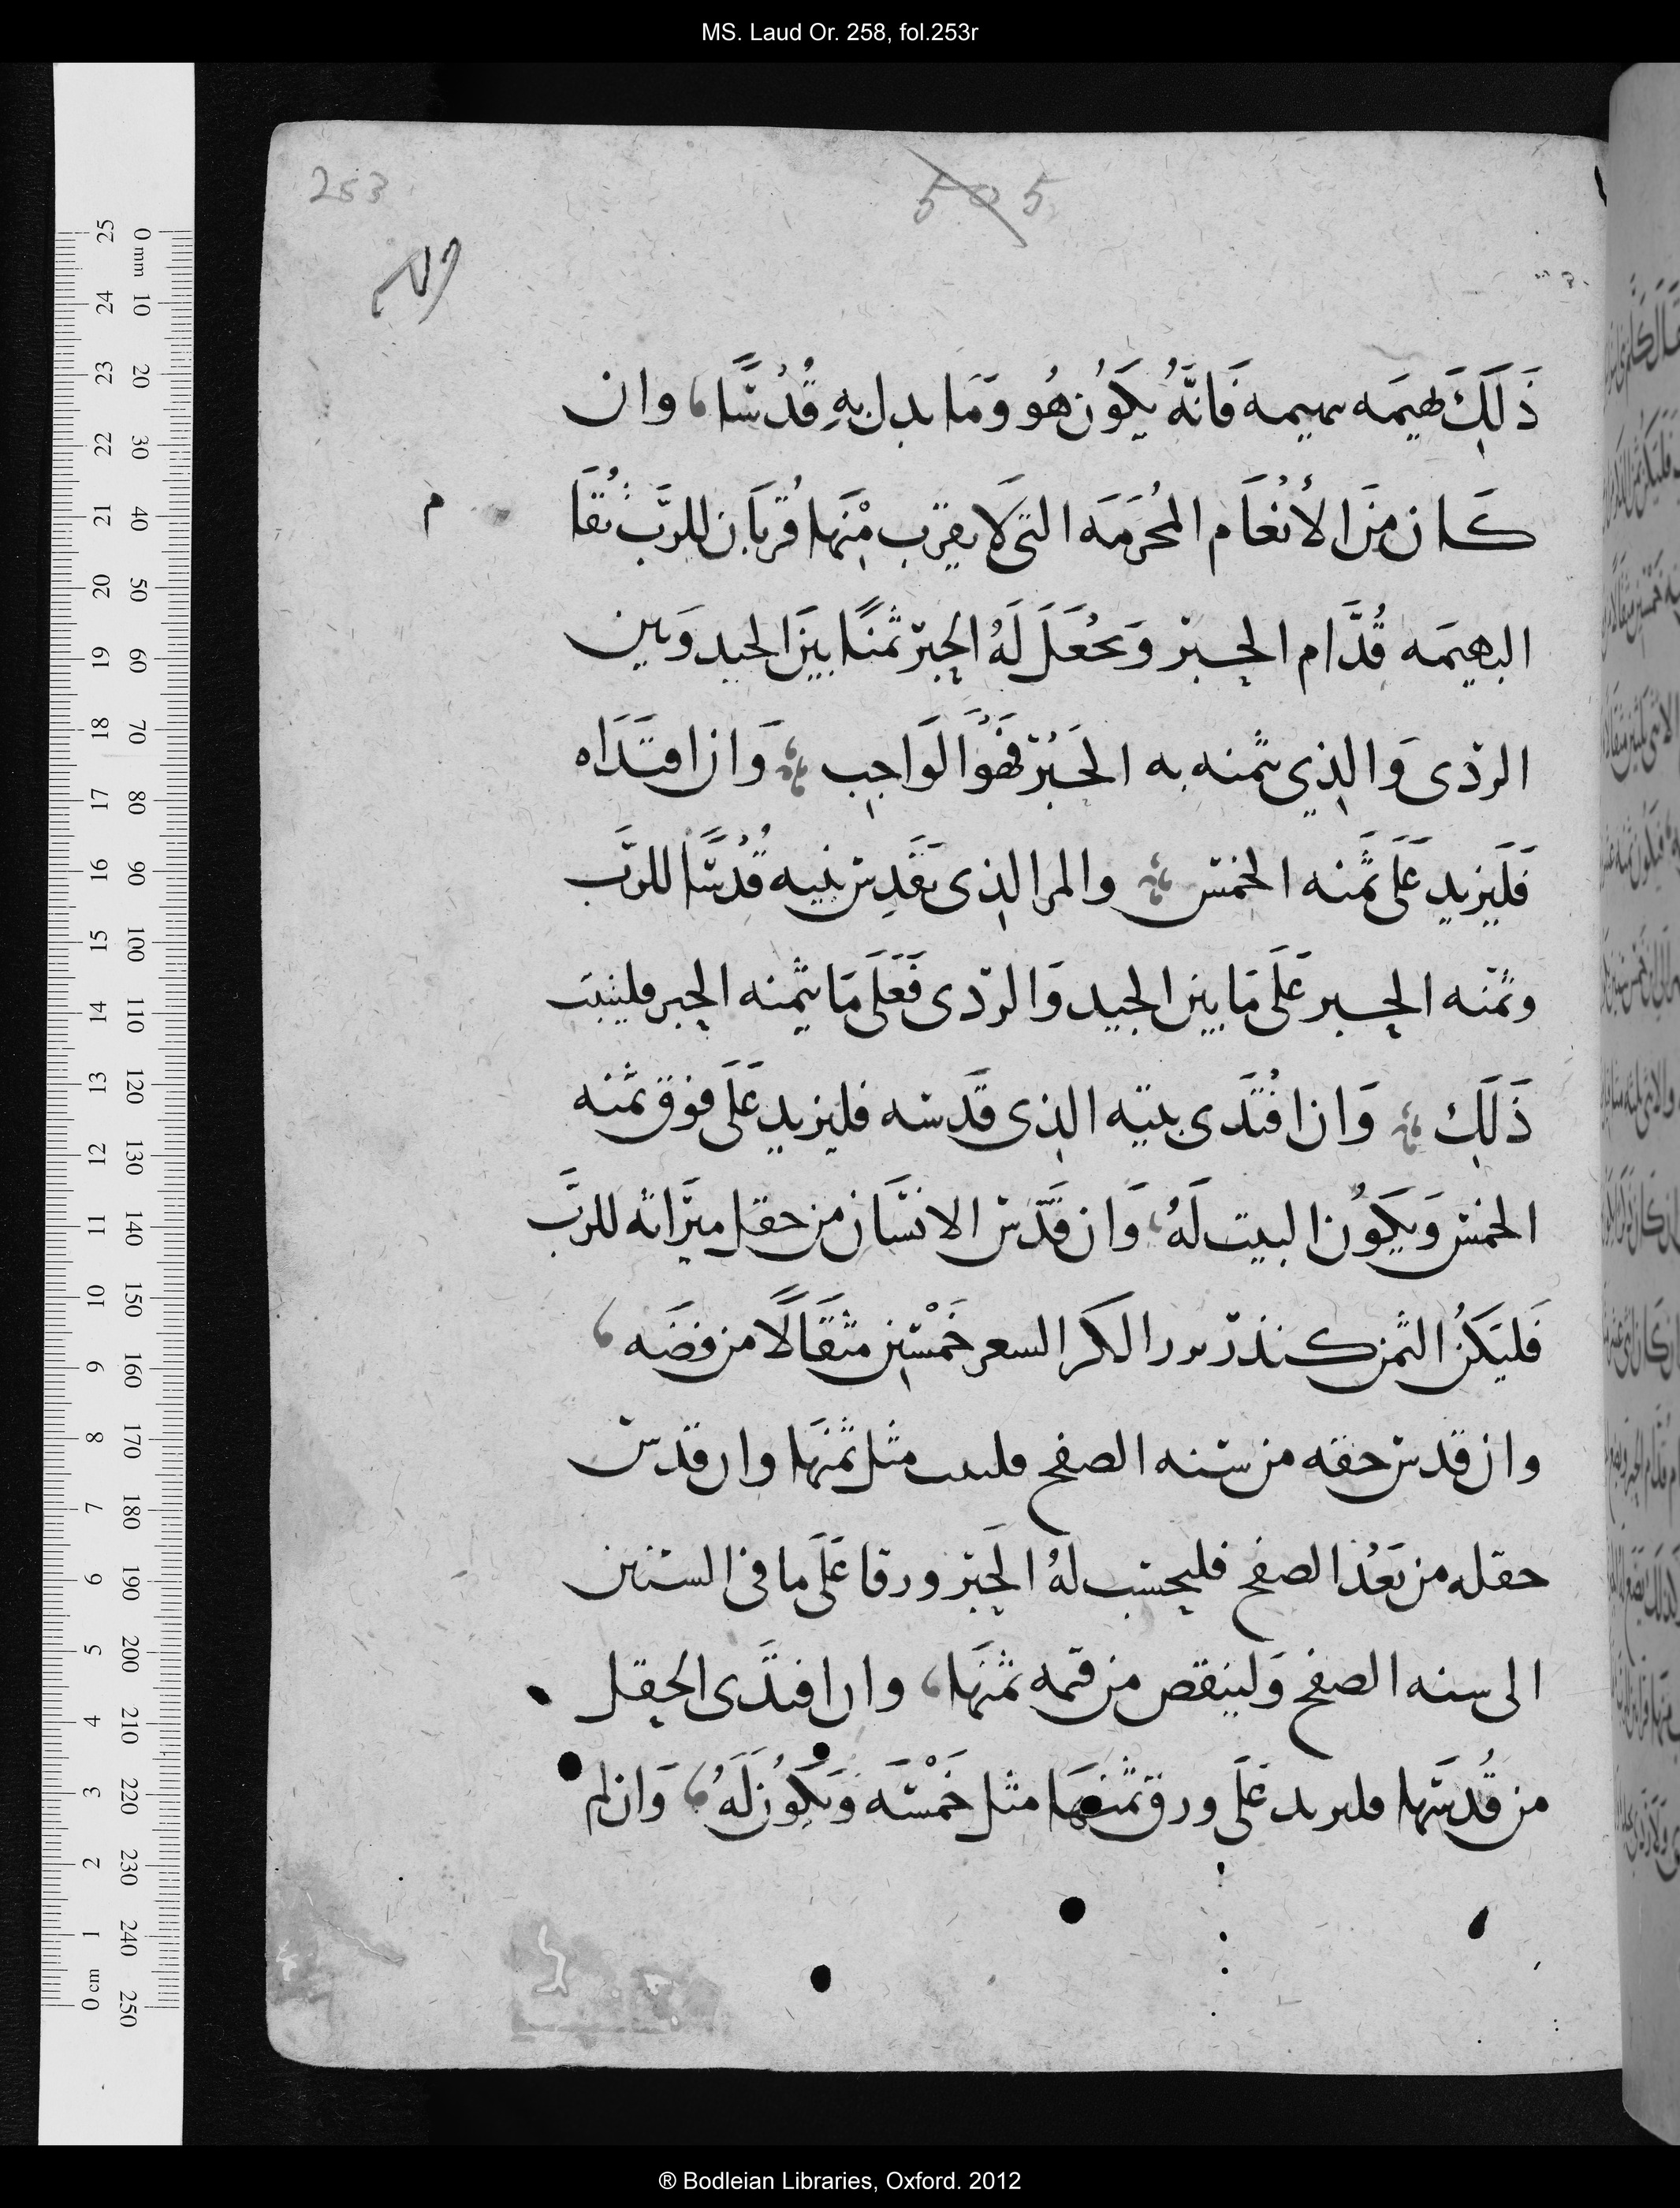 MS. Laud Or. 258, fol.253r
253
505
ذَلَكَ بهيمَه ببهيمه فَانَّهُ يكَوُن هُو وَمَا بدل بِهِ قُدُسًّا، وان
كَان مِنَ الأنعَام المُحَرَمَه التى لَا يقرب مِنهَا قُربَان للرَّب تُقَا
م
البهيمَه قُدَّام الحبر وَيحُعَلَ لَهُ الحِبر ثمَنًا بَينَ الجيد وَبين
الردى وَالذي يثمنه به الحَبُر فَهُوَ الوَاجب وَان افتدَاه
فَليَزيد عَلَى ثمَنه الخمس والمرا الذى يقَدِس بيته قُدُسًّا للرَّب
وثمَنه الحبر عَلَى مَا بين الجيد وَالردى فَعَلَى مَا يثمنه الحِبر فليثبت
ذَلَك وَان افتُدَى بيته الذى قدَسه فليزيد عَلَى فوق ثمَنه
الخمس وَيكَوُن البيت لَهُ، وَان قَدَّس الانسَان من حقل ميرَاثه للرَّب
فَليكَنُ الثمن كنذر بدر الكر السعر خَمْسين مثقَالًا من فضَه،
وان قدس حقه من سنه الصفح فليثبت مثل ثمَنهَا وان قدس
حقله من بَعُد الصفح فليحسب لهُ الحَبر ورقا عَلَى ما فى السنين
الى سنه الصفح وَلينقص من قمه ثمنَهَا، وان افتدَى الحقل
من قُدسَهَا فليزيد عَلَى ورق ثمَنهَا مثل خَمْسَه وَيكَوُن لَهُ، وَان لم
® Bodleian Libraries, Oxford. 2012